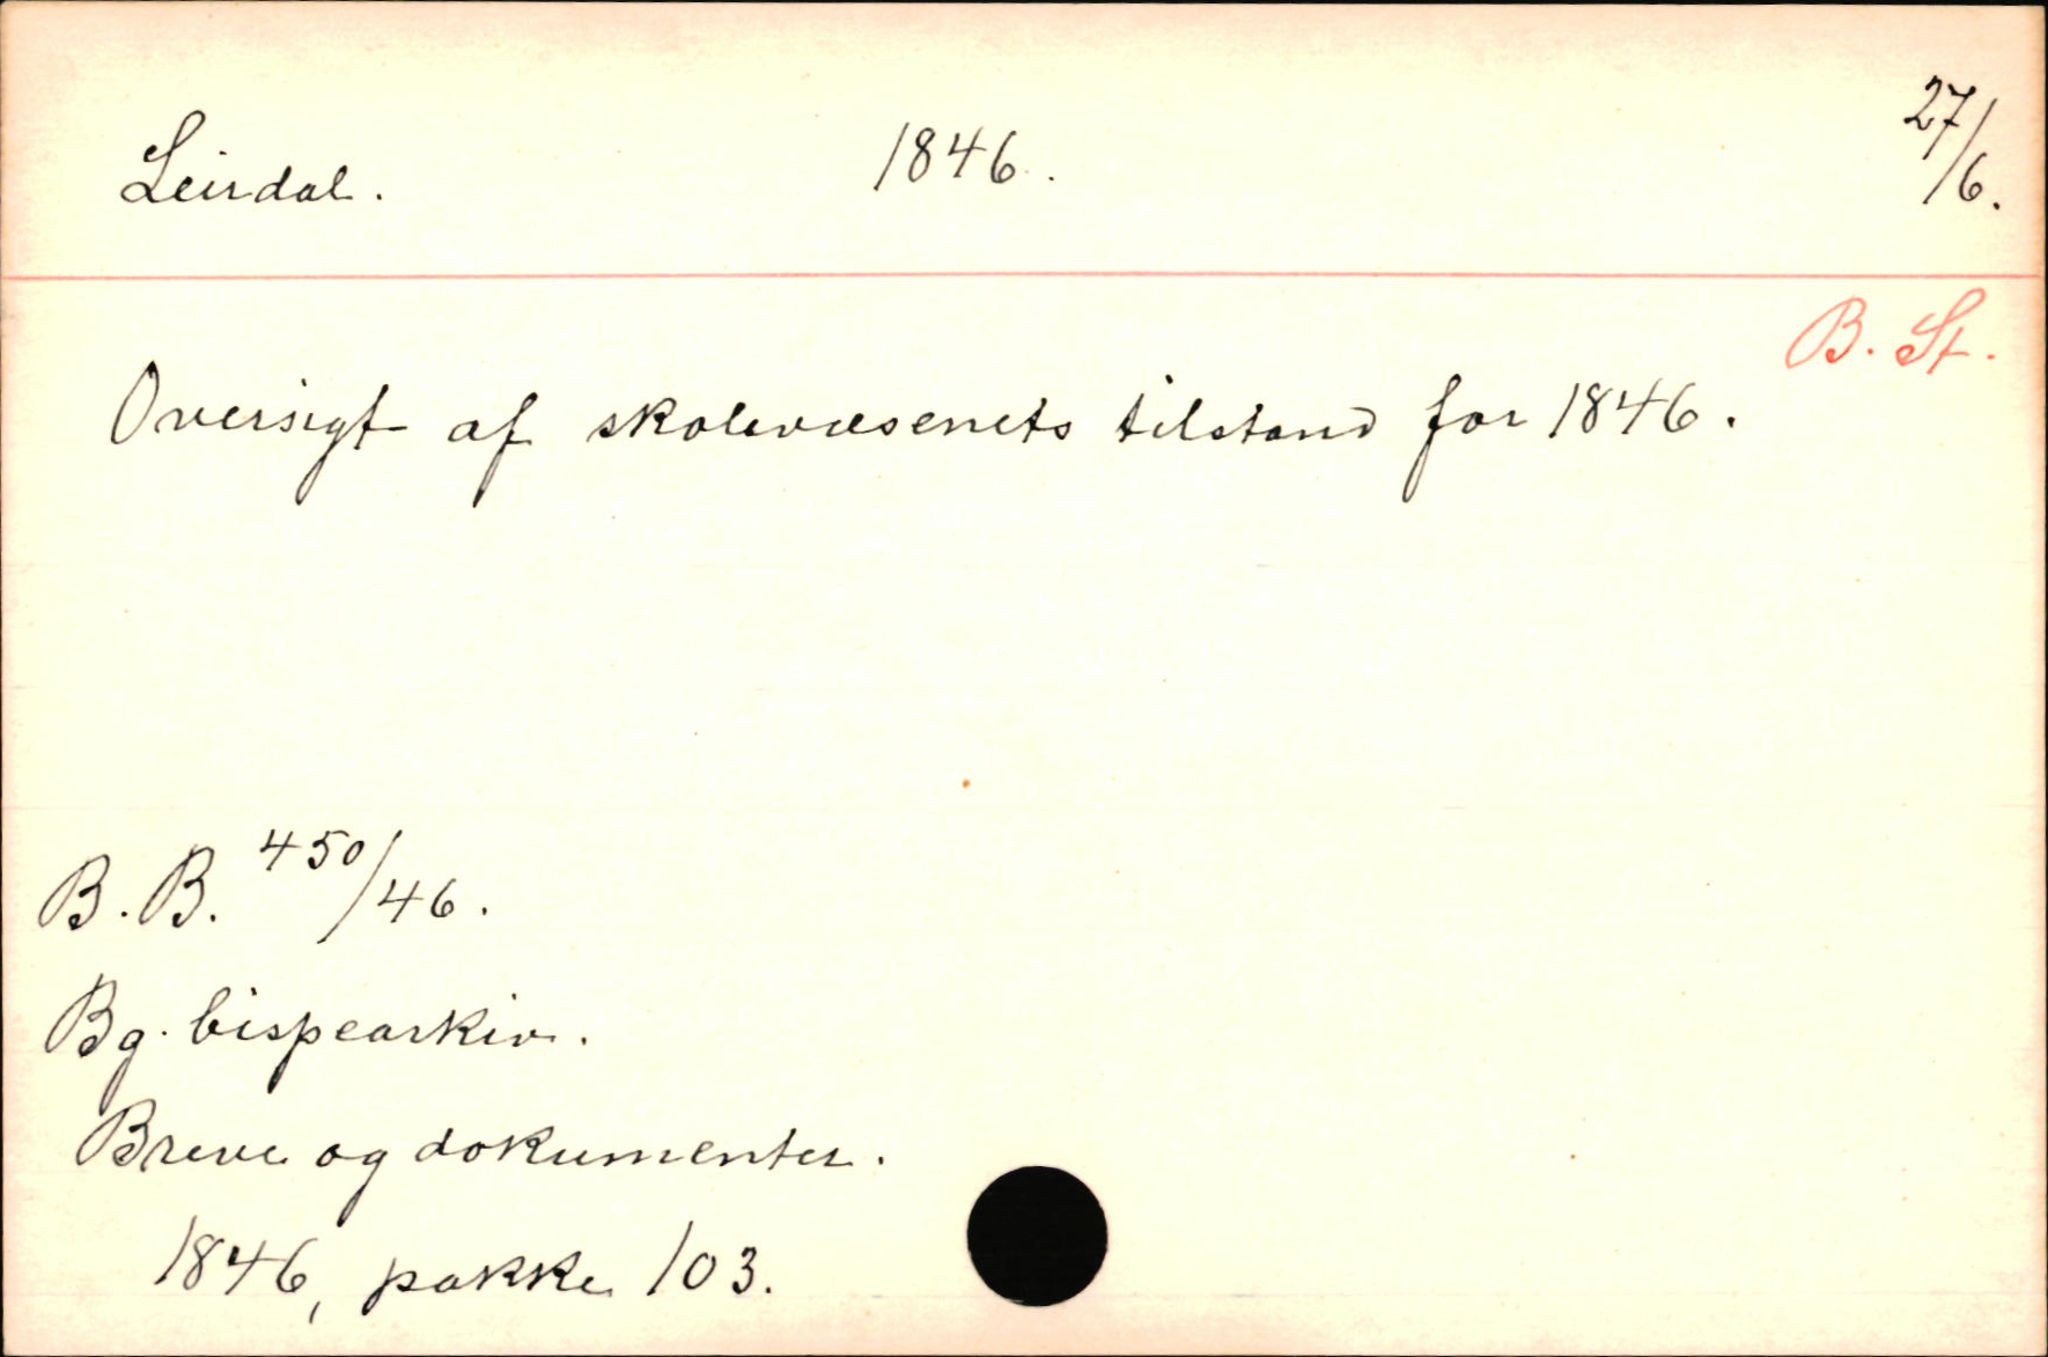 Leirdal. 1846. 27/6.
B. St.
Oversigt af skolevæsenets tilstand for 1846.
B. B. 450/46.
Bg. bispearkiv.
Breve og dokumenter.
1846, pakke 103.